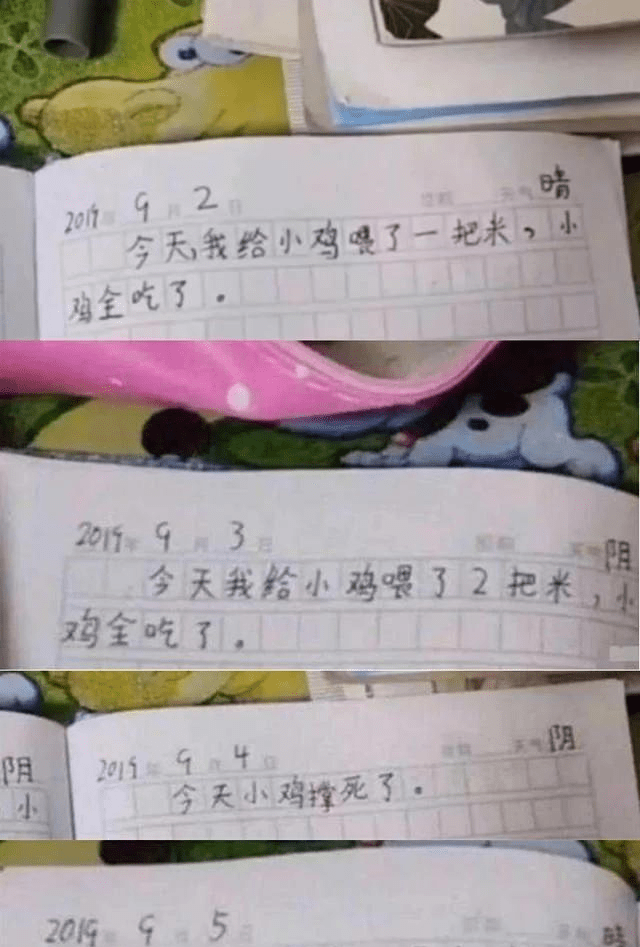 2019年 9月 2日 天气 晴
今天,我给小鸡喂了一把米，小
鸡全吃了。
2019年 9月 3日 星期 天气 阴
今天我给小鸡喂了2把米，小
鸡全吃了。
阴
小
2019年 9月 4日 星期 天气 阴
今天小鸡撑死了。
2019年 9月 5日 晴